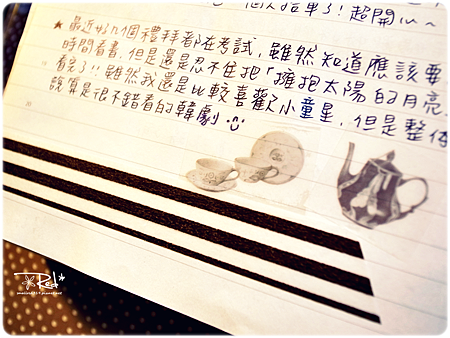 個人始單了!超開心~
★最近好几個禮拜都在考試,雖然知道應該要
時間看書,但是還是忍不住把「擁抱太陽的月亮
看完了!!雖然我還是比較喜歡小童星,但是整体
說算是很不錯看的韓劇
Red*